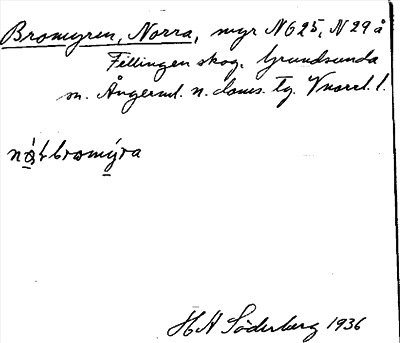 Bromyren, Norra, myr N 625, N 29 å
Fillingen skog. Grundsunda
sn. Ångerml. n. doms. tg. Vnorrl. l.
HA Söderberg 1936